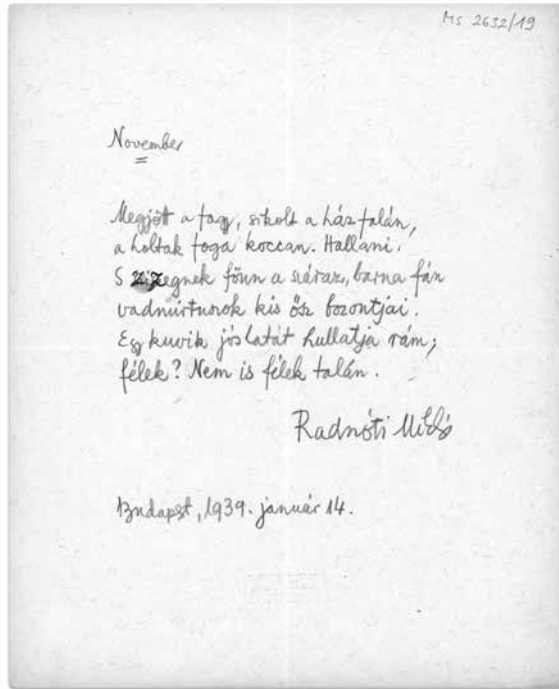 Ms 2632/19
November
Megjött a fagy, sikolt a ház falán,
a holtak foga koccan. Hallani.
S zizegnek fönn a száraz, barna fán
vadmirtuszok kis ősz bozontjai.
Egy kuvik jóslatát hullatja rám;
félek? Nem is félek talán.
Radnóti Miklós
Budapest, 1939. január 14.